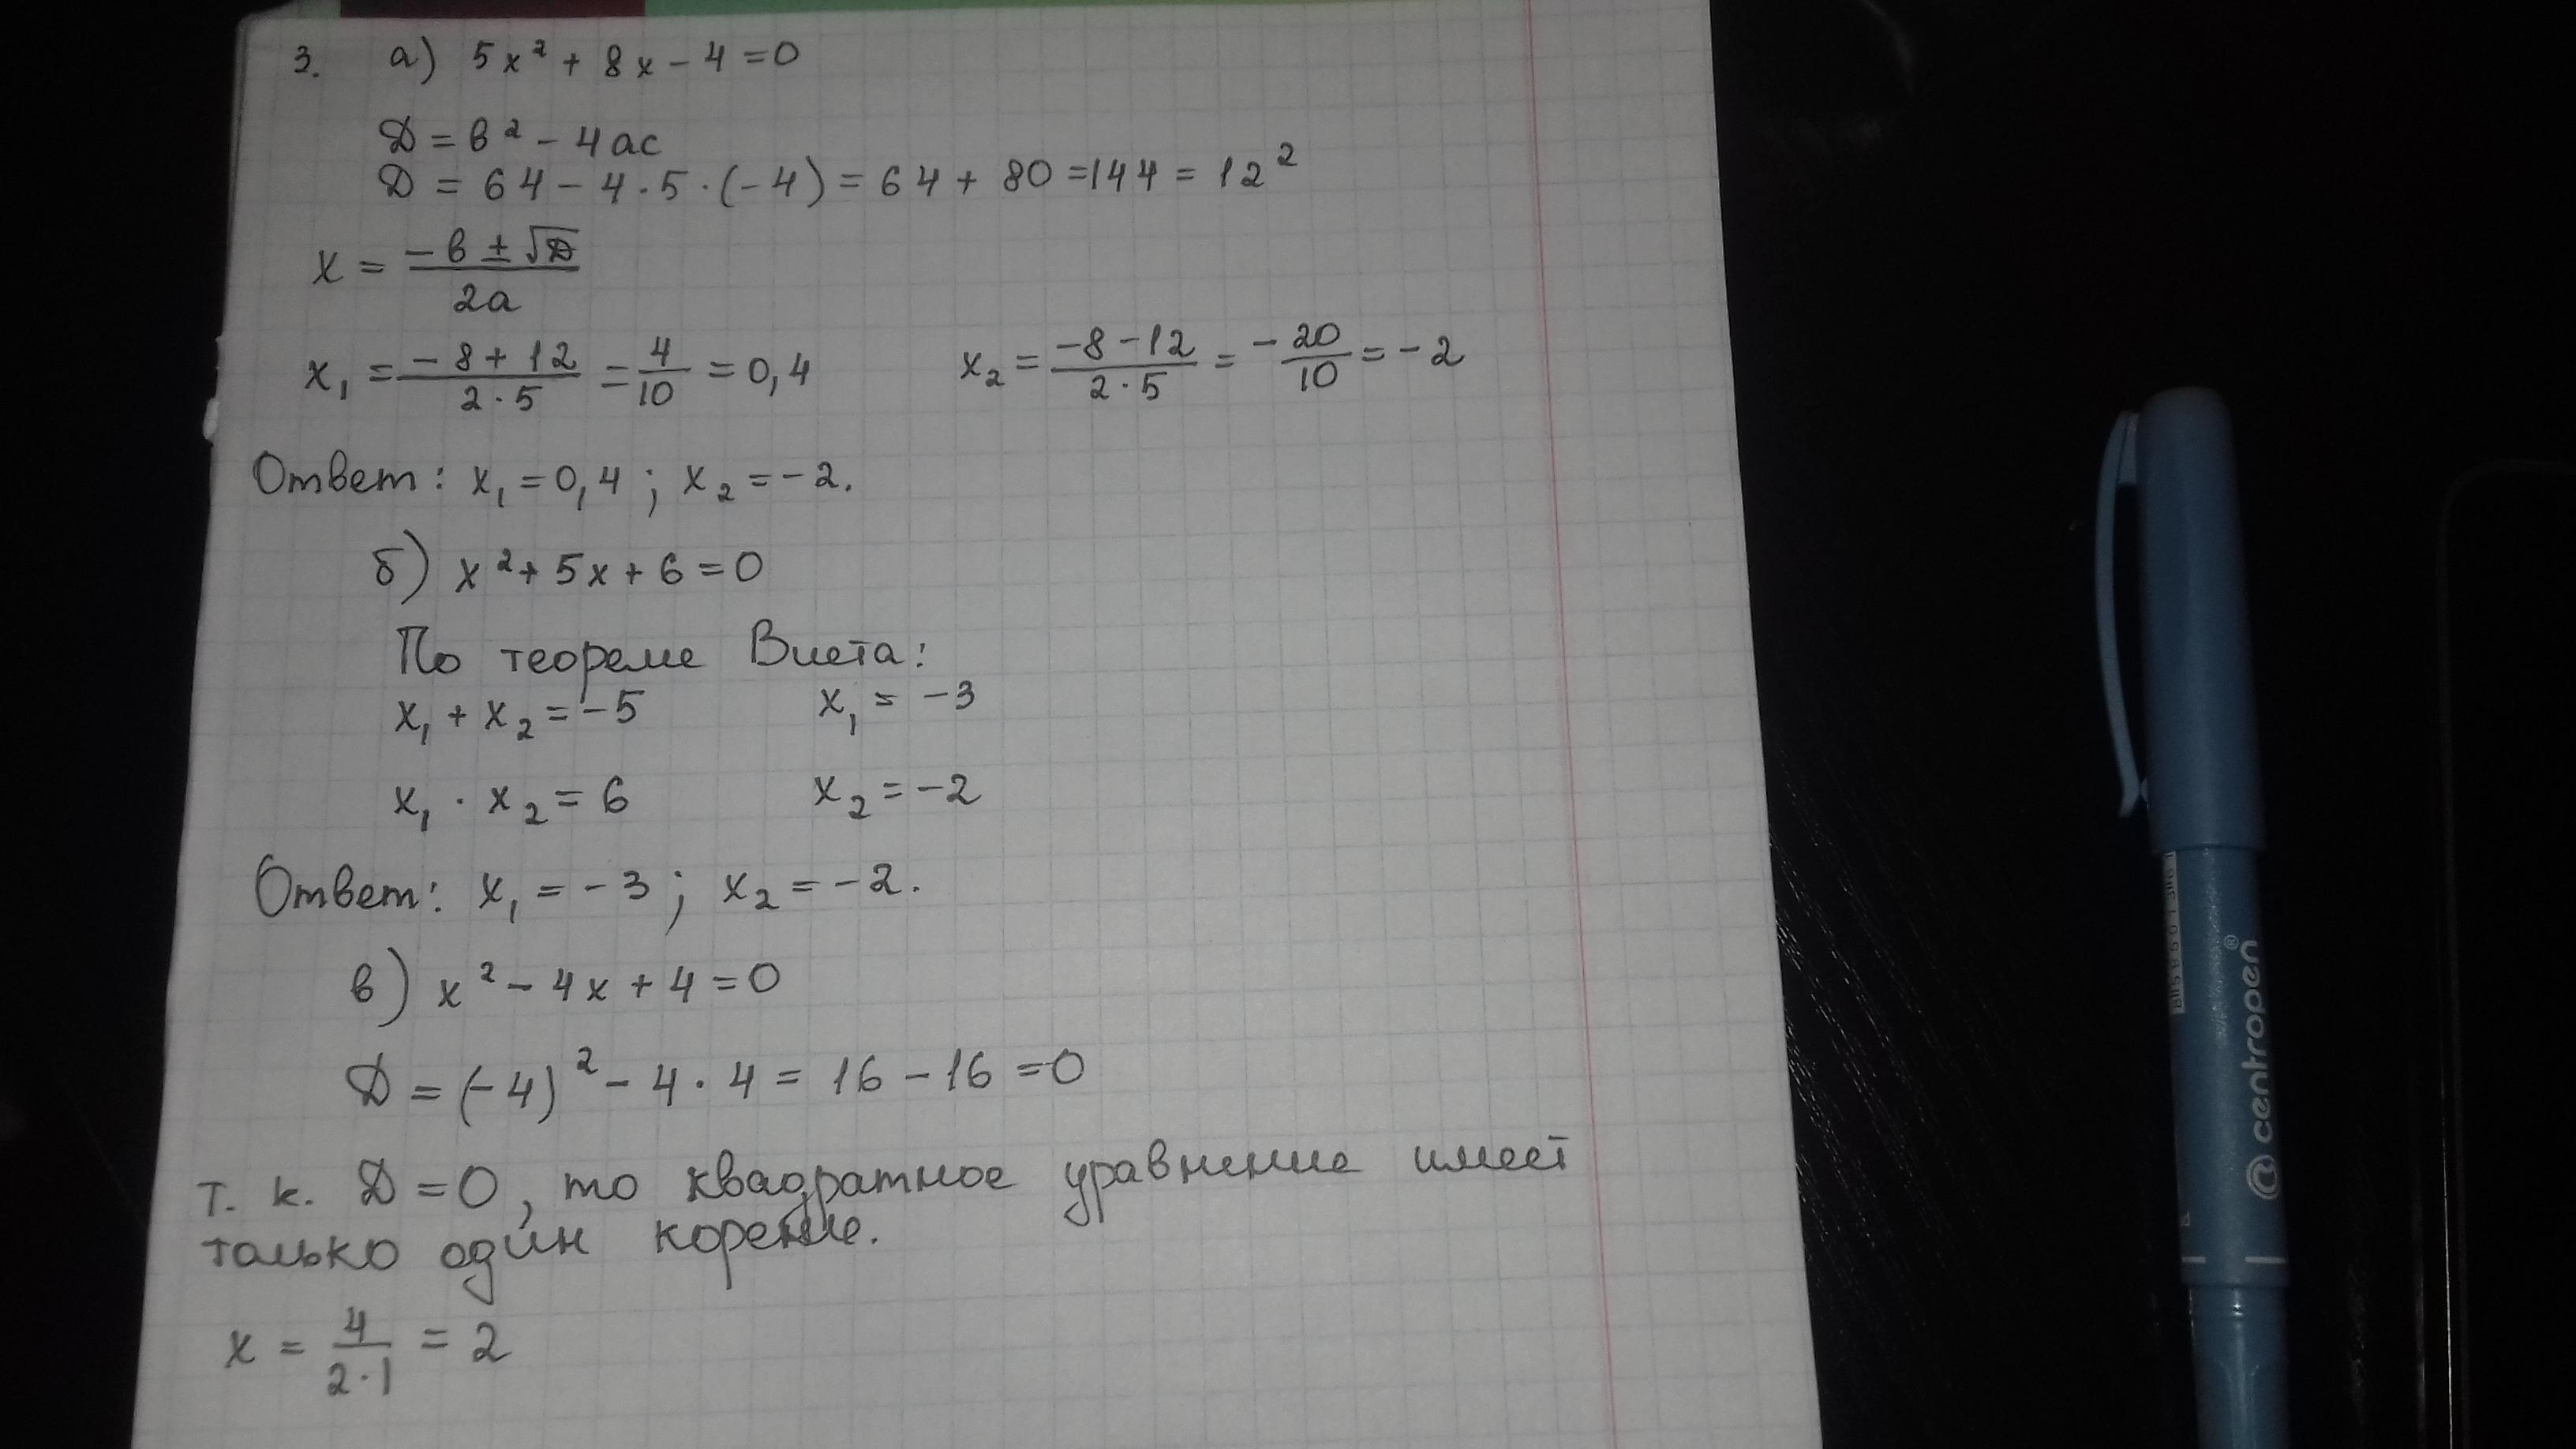 3. а) 5x² + 8x - 4 = 0
D = в² - 4ac
D = 64 - 4 · 5 · (-4) = 64 + 80 = 144 = 12²
x = (-в ± √D) / 2a
x₁ = (-8 + 12) / (2 · 5) = 4/10 = 0,4 x₂ = (-8 - 12) / (2 · 5) = -20/10 = -2
Ответ: x₁ = 0,4 ; x₂ = -2.
б) x² + 5x + 6 = 0
По теореме Виета:
x₁ + x₂ = -5 x₁ = -3
x₁ · x₂ = 6 x₂ = -2
Ответ: x₁ = -3 ; x₂ = -2.
в) x² - 4x + 4 = 0
D = (-4)² - 4 · 4 = 16 - 16 = 0
т. к. D = 0, то квадратное уравнение имеет
только один
x = 4 / (2 · 1) = 2
centropen®